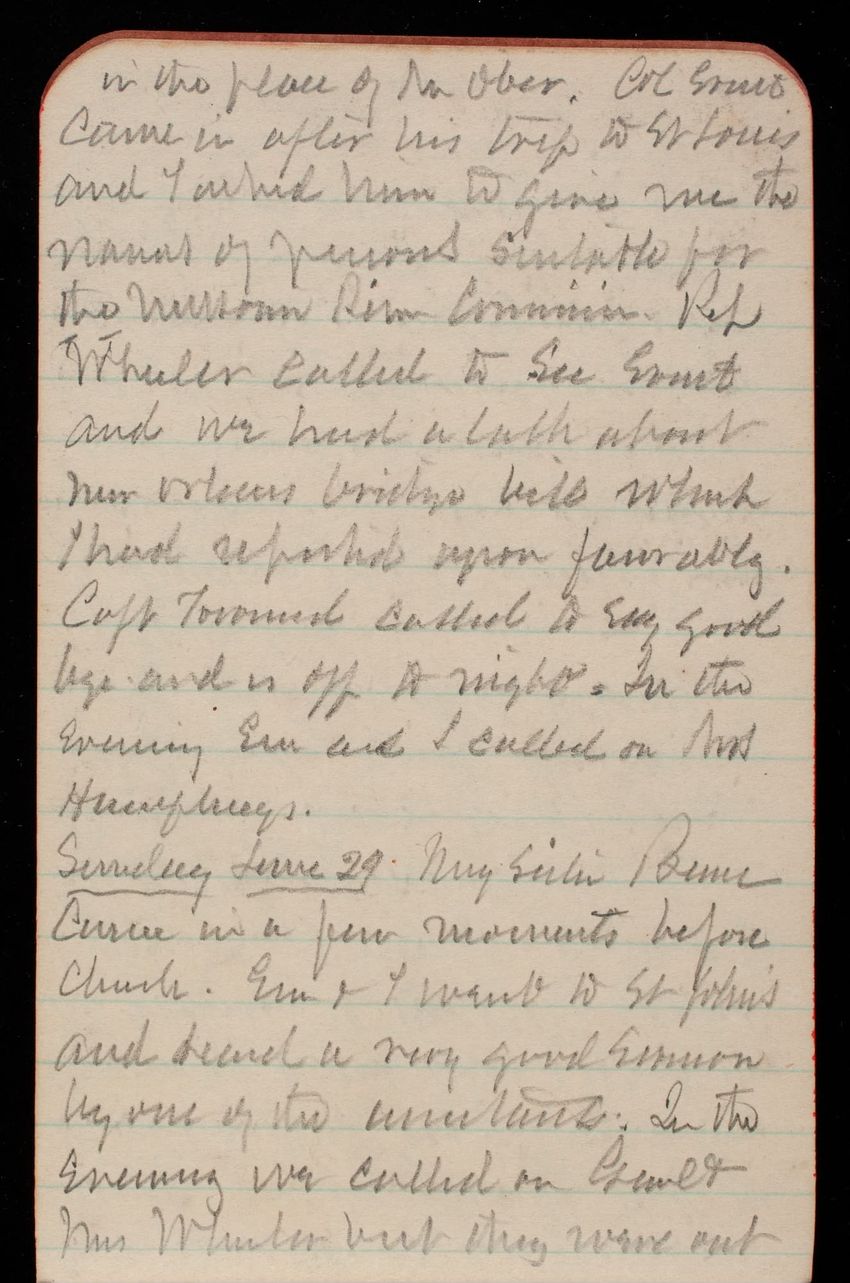 in the place of Mr Ober. Col Ernst
Came in after his trip to St Louis
and I asked him to give me the
names of persons suitable for
the Missouri River Commission. Rep
Wheeler called to see Ernst
and we had a talk about
New Orleans bridge bill which
I had reported upon favorably.
Capt Townsend called to say good
bye and is off to night. In the
evening Em and I called on Mrs
Humphreys.
Sunday June 29 My sister
Came in a few moments before
Church. Em & I went to St John's
and heard a very good sermon
by one of the assistants. In the
Evening we called on Genl &
Mrs Wheeler but they were out